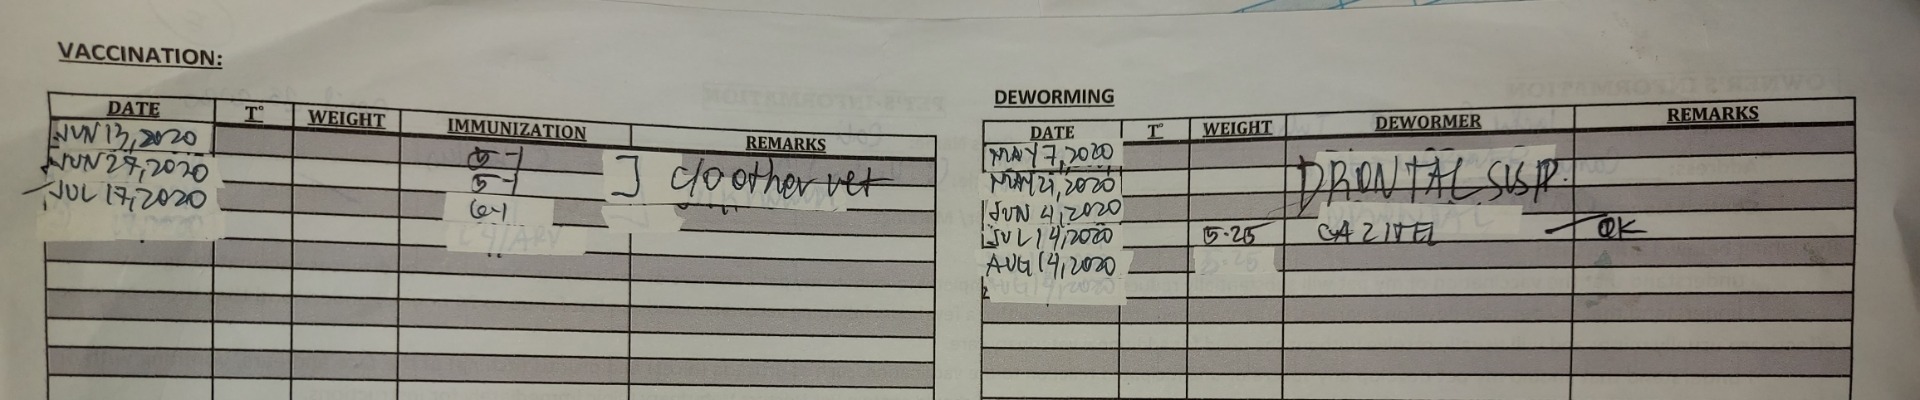 VACCINATION:
DATE T° WEIGHT IMMUNIZATION REMARKS
JUN 13, 2020 5-1
JUN 27, 2020 5-1 ] c/o other vet
JUL 17, 2020 6-1
DEWORMING
DATE T° WEIGHT DEWORMER REMARKS
MAY 7, 2020
MAY 21, 2020 DRONTAL SUSP.
JUN 4, 2020
JUL 14, 2020 5.25 CAZITEL — OK
AUG 14, 2020